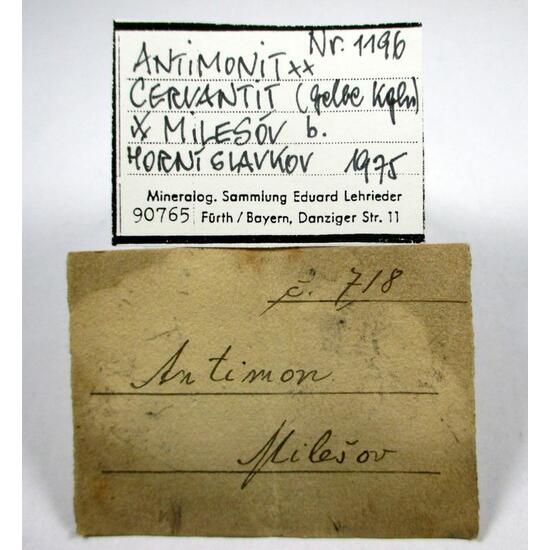 Nr. 1196
ANTIMONIT xx
CERVANTIT (gelbe Kqln)
MILEŠOV b.
HORNÍ SLAVKOV 1975
Mineralog. Sammlung Eduard Lehrieder
90765 Fürth / Bayern, Danziger Str. 11
č. 718
Antimon
Milešov